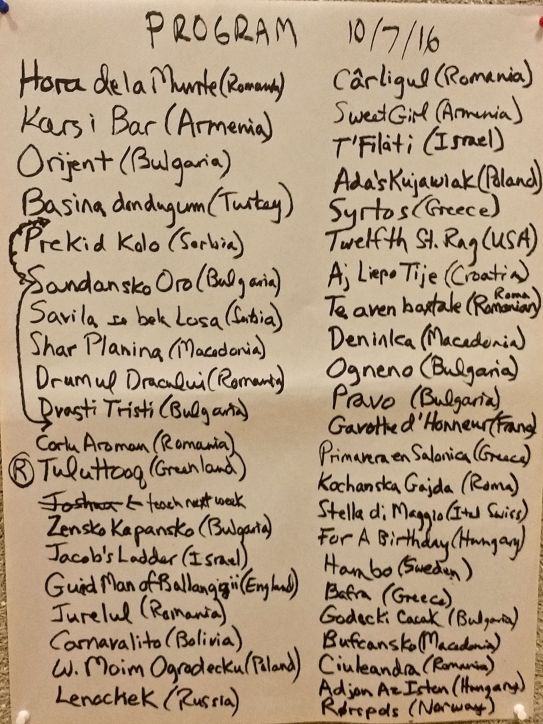 PROGRAM 10/7/16
Hora de la Munte (Romania)
Kars i Bar (Armenia)
Orijent (Bulgaria)
Basina dondugum (Turkey)
Prekid Kolo (Serbia)
Sandansko Oro (Bulgaria)
Savila se bela Losa (Serbia)
Shar Planina (Macedonia)
Drumul Dracului (Romania)
Dvasti Tristi (Bulgaria)
Corlu Aroman (Romania)
R Tuluttooq (Greenland)
Joshua ← teach next week
Zensko Kapansko (Bulgaria)
Jacob's Ladder (Israel)
Guid Man of Ballangigii (England)
Jurelul (Romania)
Carnavalito (Bolivia)
W. Moim Ogrodecku (Poland)
Lenochek (Russia)
Cârligul (Romania)
Sweet Girl (Armenia)
T'Filati (Israel)
Ada's Kujawiak (Poland)
Syrtos (Greece)
Twelfth St. Rag (USA)
Aj Liepo Tije (Croatia)
Te aven baxtale (Roma Romanian)
Deninka (Macedonia)
Ogneno (Bulgaria)
Pravo (Bulgaria)
Gavotte d'Honneur (France)
Primavera en Salonica (Greece)
Kochanska Gajda (Roma)
Stella di Maggio (Ital Swiss)
For A Birthday (Hungary)
Hambo (Sweden)
Bafra (Greece)
Godecki Cacak (Bulgaria)
Bufcansko (Macedonia)
Ciuleandra (Romania)
Adjon Az Isten (Hungary)
Rørspols (Norway)